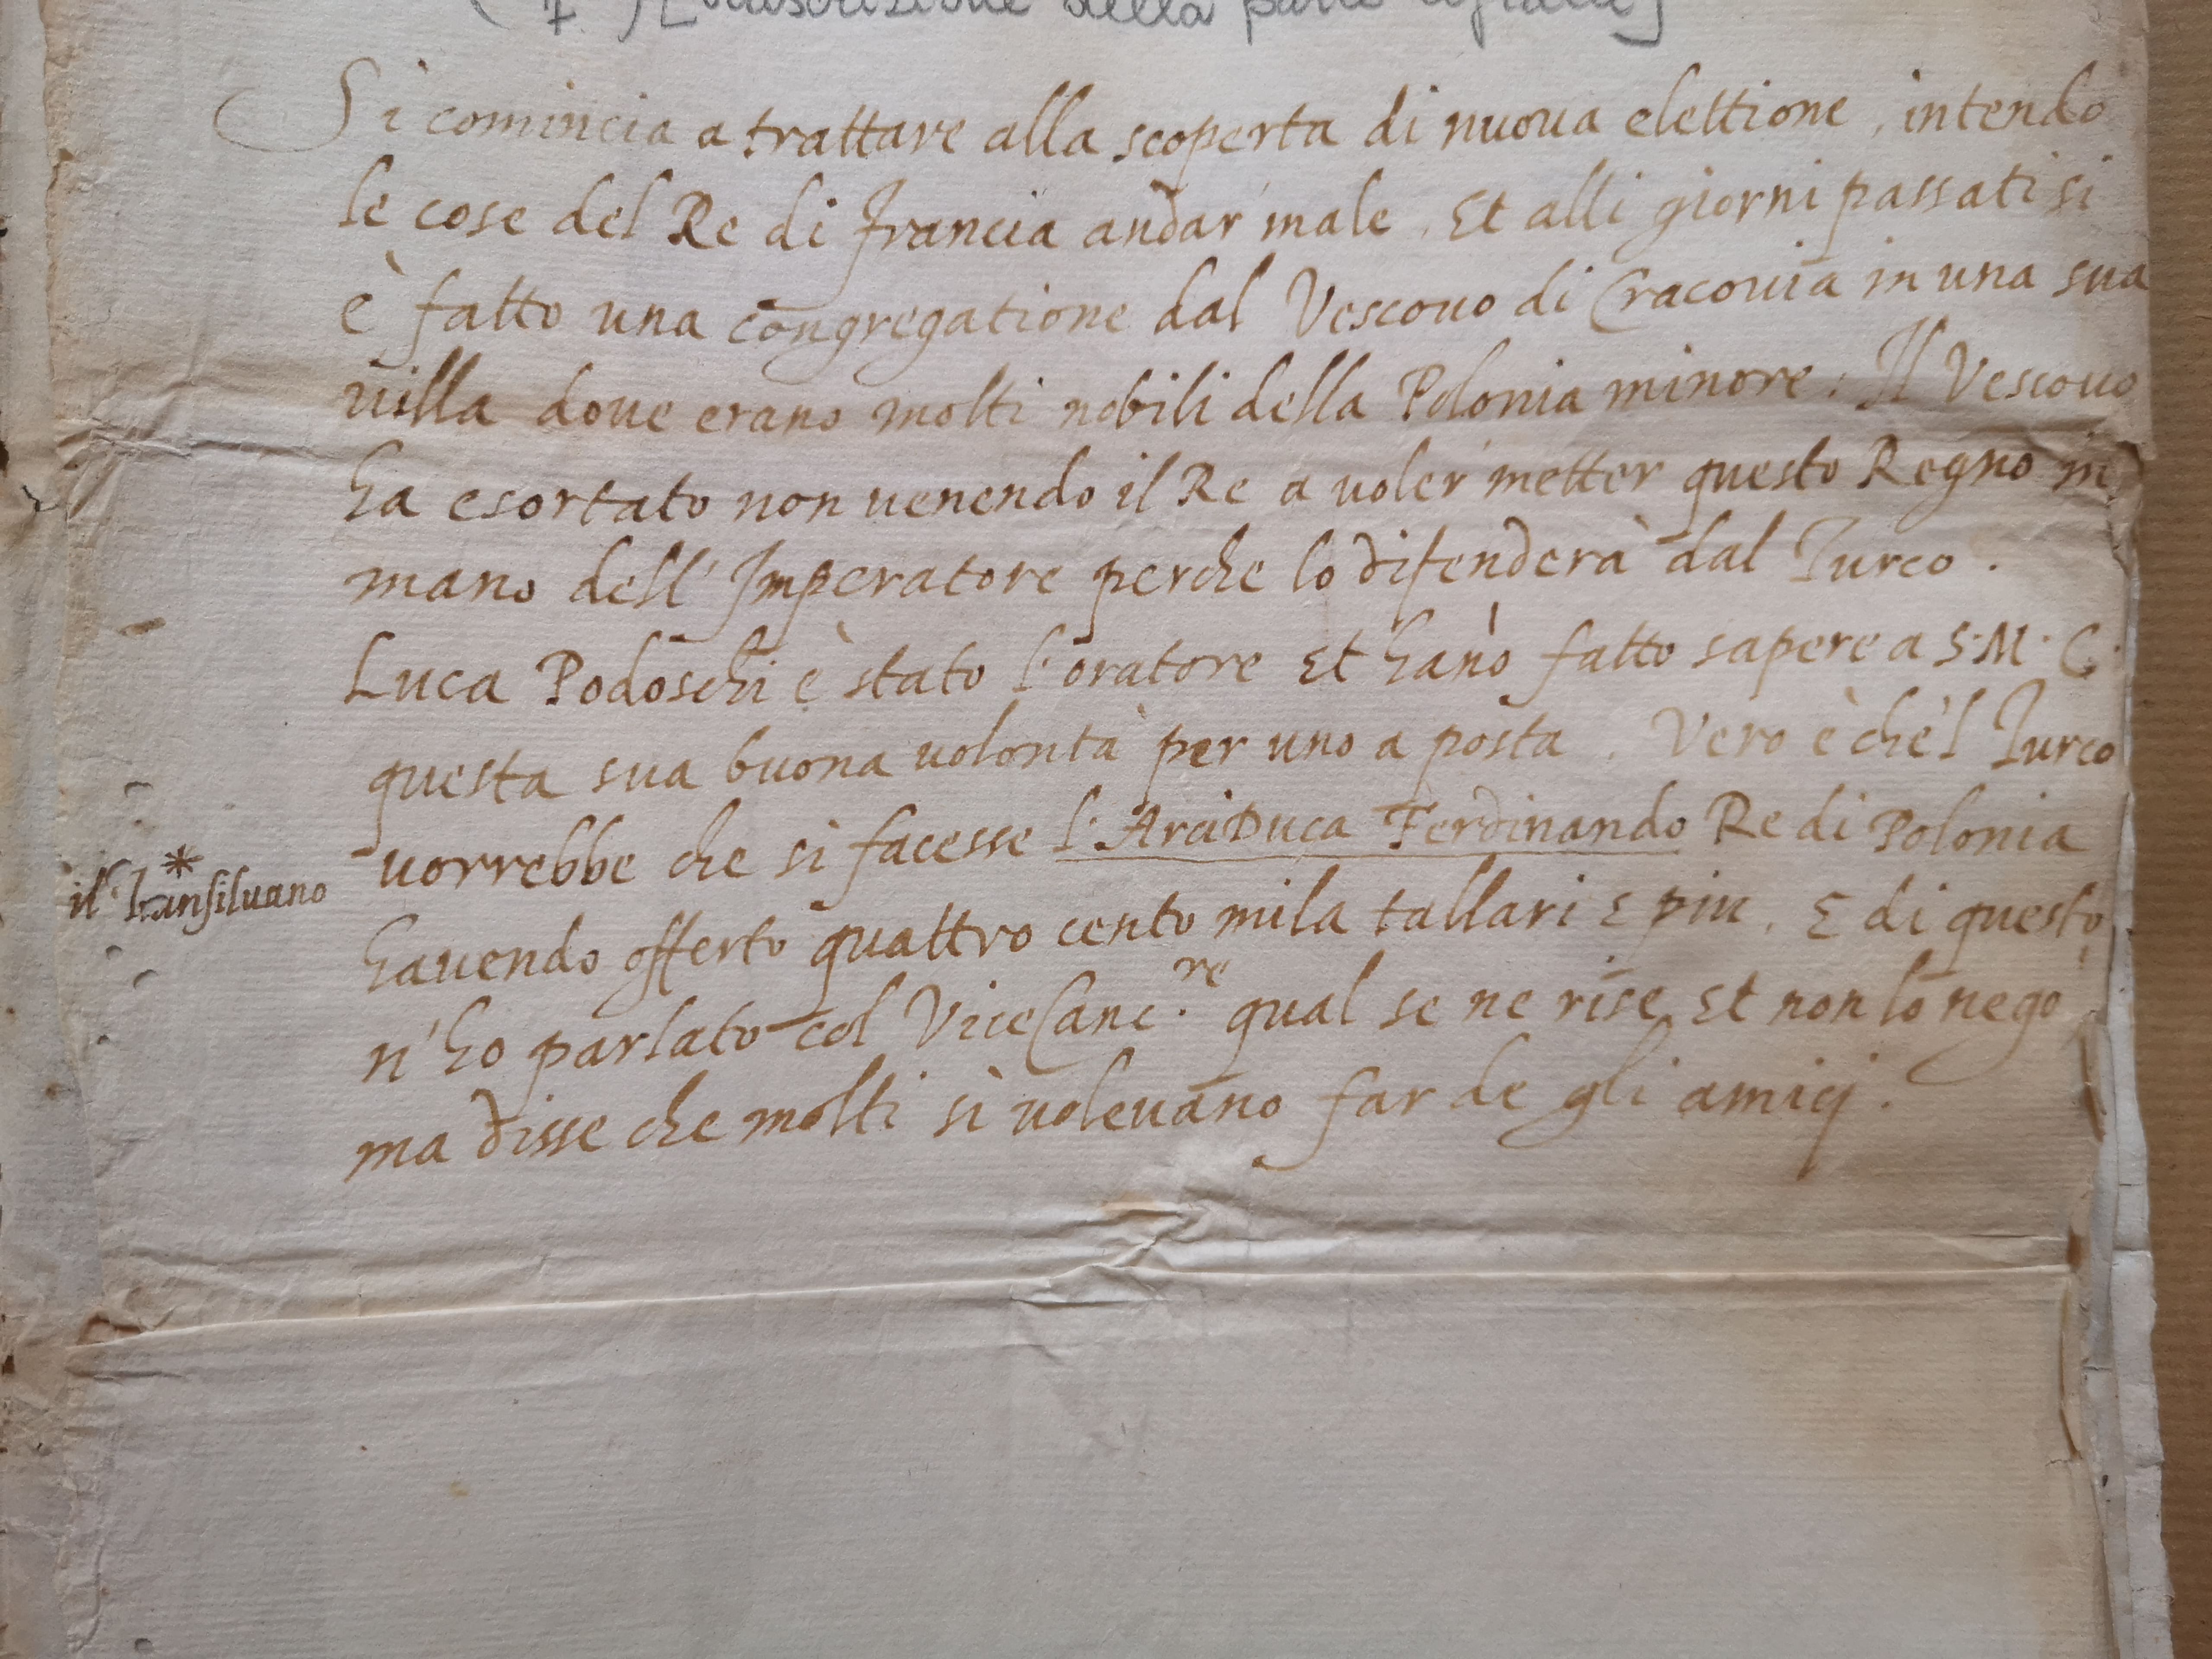 [trascrizione della parte cifrata]
Si comincia a trattare alla scoperta di nuoua elettione, intendo
le cose del Re di Francia andar male. Et alli giorni passati si
è fatto una congregatione dal Vescouo di Cracouia in una sua
uilla doue erano molti nobili della Polonia minore: Il Vescouo
ha esortato non uenendo il Re a uoler metter questo Regno in
mano dell'Imperatore perche lo difenderà dal Turco.
Luca Podoschi è stato l'oratore Et hano fatto sapere a S.M.C.
questa sua buona uolontà per uno a posta. Vero è che'l Turco
uorrebbe che si facesse l'ArciDuca Ferdinando Re di Polonia
* il Transiluano
hauendo offerto quattro cento mila tallari e piu. E di questo
n'ho parlato col ViceCanc.re qual se ne rise Et non lo nego
ma disse che molti si uoleuano far de gli amici.